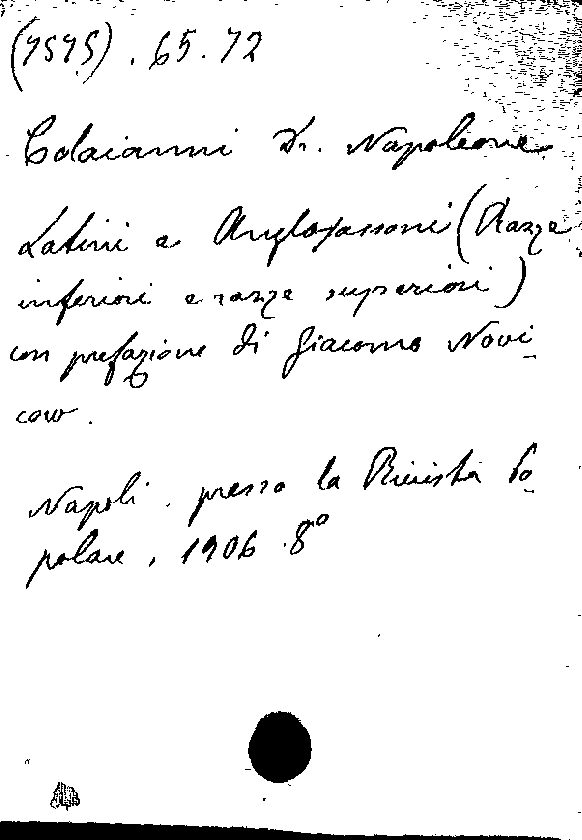 (7575). 65. 72
Colaianni Dr. Napoleone
Latini e Anglosassoni (Razze
inferiori e razze superiori)
con prefazione di Giacomo Novi-
cow.
Napoli. presso la Rivista Po-
polare, 1906. 8º